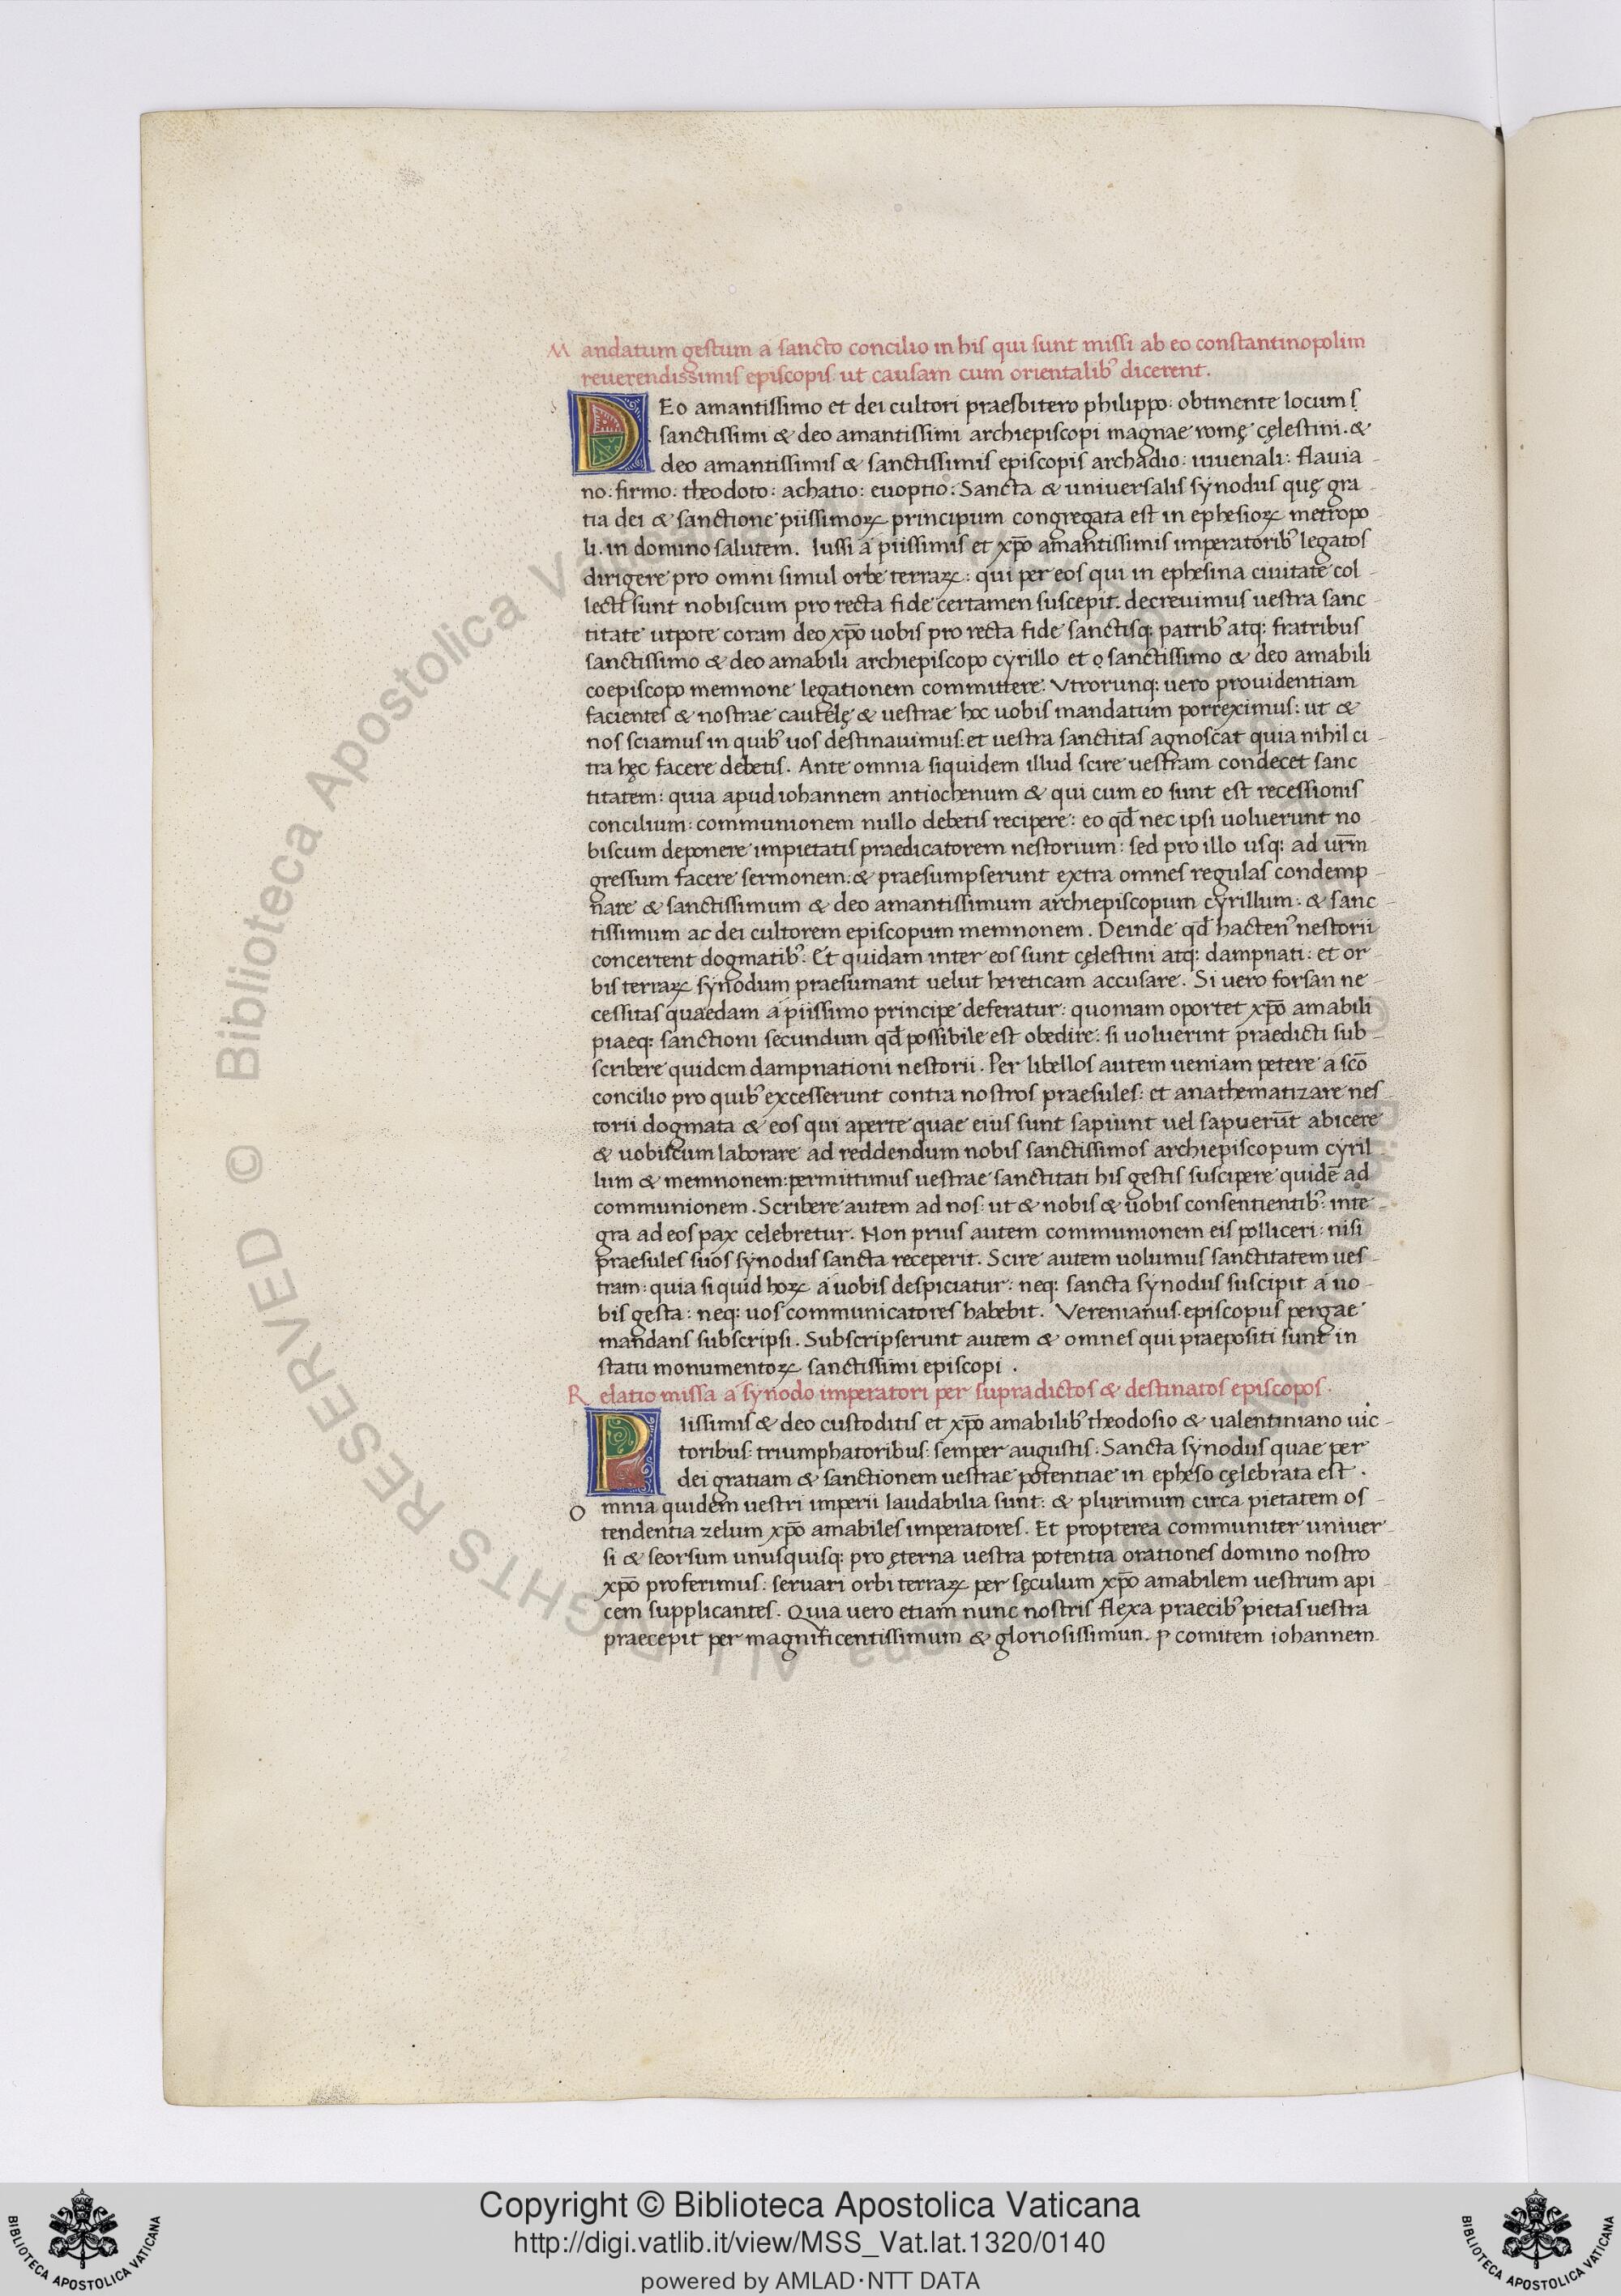 Mandatum gestum a sancto concilio in his qui sunt missi ab eo constantinopolim
reuerendissimis episcopis ut causam cum orientalib᾽ dicerent.
DEo amantissimo et dei cultori praesbitero philippo: obtinente locum s̩
sanctissimi & deo amantissimi archiepiscopi magnae romę cęlestini. &
deo amantissimis & sanctissimis episcopis archadio: iuuenali: flauia-
no: firmo: theodoto: achatio: euoptio: Sancta & uniuersalis synodus quę gra-
tia dei & sanctione piissimoꝝ principum congregata est in ephesioꝝ metropo-
li. in domino salutem. Iussi a piissimis et xp̄o amantissimis imperatorib᾽ legatos
dirigere pro omni simul orbe terraꝝ: qui per eos qui in ephesina ciuitate col-
lecti sunt nobiscum pro recta fide certamen suscepit. decreuimus uestra sanc-
titate utpote coram deo xp̄o uobis pro recta fide sanctisq: patrib᾽ atq: fratribus
sanctissimo & deo amabili archiepiscopo cyrillo et o̩ sanctissimo & deo amabili
coepiscopo memnone legationem committere. Vtrorunq: uero prouidentiam
facientes & nostrae cautelę & uestrae hoc uobis mandatum porreximus: ut &
nos sciamus in quib᾽ uos destinauimus: et uestra sanctitas agnoscat quia nihil ci-
tra hęc facere debetis. Ante omnia siquidem illud scire uestram condecet sanc-
titatem: quia apud iohannem antiochenum & qui cum eo sunt est recessionis
concilium: communionem nullo debetis recipere: eo qđ nec ipsi uoluerunt no-
biscum deponere impietatis praedicatorem nestorium: sed pro illo usq: ad ur̄m
gressum facere sermonem: & praesumpserunt extra omnes regulas condemp-
nare & sanctissimum & deo amantissimum archiepiscopum cyrillum: & sanc-
tissimum ac dei cultorem episcopum memnonem. Deinde qđ hacten᾽ nestorii
concertent dogmatib᾽. Et quidam inter eos sunt cęlestini atq: dampnati: et or-
bis terraꝝ synodum praesumant uelut hereticam accusare. Si uero forsan ne-
cessitas quaedam a piissimo principe deferatur: quoniam oportet xp̄o amabili
piaeq: sanctioni secundum qđ possibile est obedire: si uoluerint praedicti sub-
scribere quidem dampnationi nestorii. Per libellos autem ueniam petere a sc̄o
concilio pro quib᾽ excesserunt contra nostros praesules: et anathematizare nes-
torii dogmata & eos qui aperte quae eius sunt sapiunt uel sapuerūt abicere
& uobiscum laborare ad reddendum nobis sanctissimos archiepiscopum cyril-
lum & memnonem: permittimus uestrae sanctitati his gestis suscipere quidē ad
communionem. Scribere autem ad nos: ut & nobis & uobis consentientib᾽: inte-
gra ad eos pax celebretur. Non prius autem communionem eis polliceri: nisi
praesules suos synodus sancta receperit. Scire autem uolumus sanctitatem ues-
tram: quia si quid hoꝝ a uobis despiciatur: neq: sancta synodus suscipit a uo-
bis gesta: neq: uos communicatores habebit. Veremianus episcopus pergae
mandans subscripsi. Subscripserunt autem & omnes qui praepositi sunt in
statu monumentoꝝ sanctissimi episcopi.
Relatio missa a synodo imperatori per supradictos & destinatos episcopos.
PIissimis & deo custoditis et xp̄o amabilib᾽ theodosio & ualentiniano uic-
toribus: triumphatoribus: semper augustis: Sancta synodus quae per
dei gratiam & sanctionem uestrae potentiae in epheso cęlebrata est.
Omnia quidem uestri imperii laudabilia sunt: & plurimum circa pietatem os-
tendentia zelum xp̄o amabiles imperatores. Et propterea communiter uniuer-
si & seorsum unusquisq: pro ęterna uestra potentia orationes domino nostro
xp̄o proferimus: seruari orbi terraꝝ per sęculum xp̄o amabilem uestrum api-
cem supplicantes. Quia uero etiam nunc nostris flexa praecib᾽ pietas uestra
praecepit per magnificentissimum & gloriosissimun. ꝑ comitem iohannem
© Biblioteca Apostolica Vaticana ALL RIGHTS RESERVED
Copyright © Biblioteca Apostolica Vaticana
http://digi.vatlib.it/view/MSS_Vat.lat.1320/0140
powered by AMLAD·NTT DATA
BIBLIOTECA APOSTOLICA VATICANA
BIBLIOTECA APOSTOLICA VATICANA